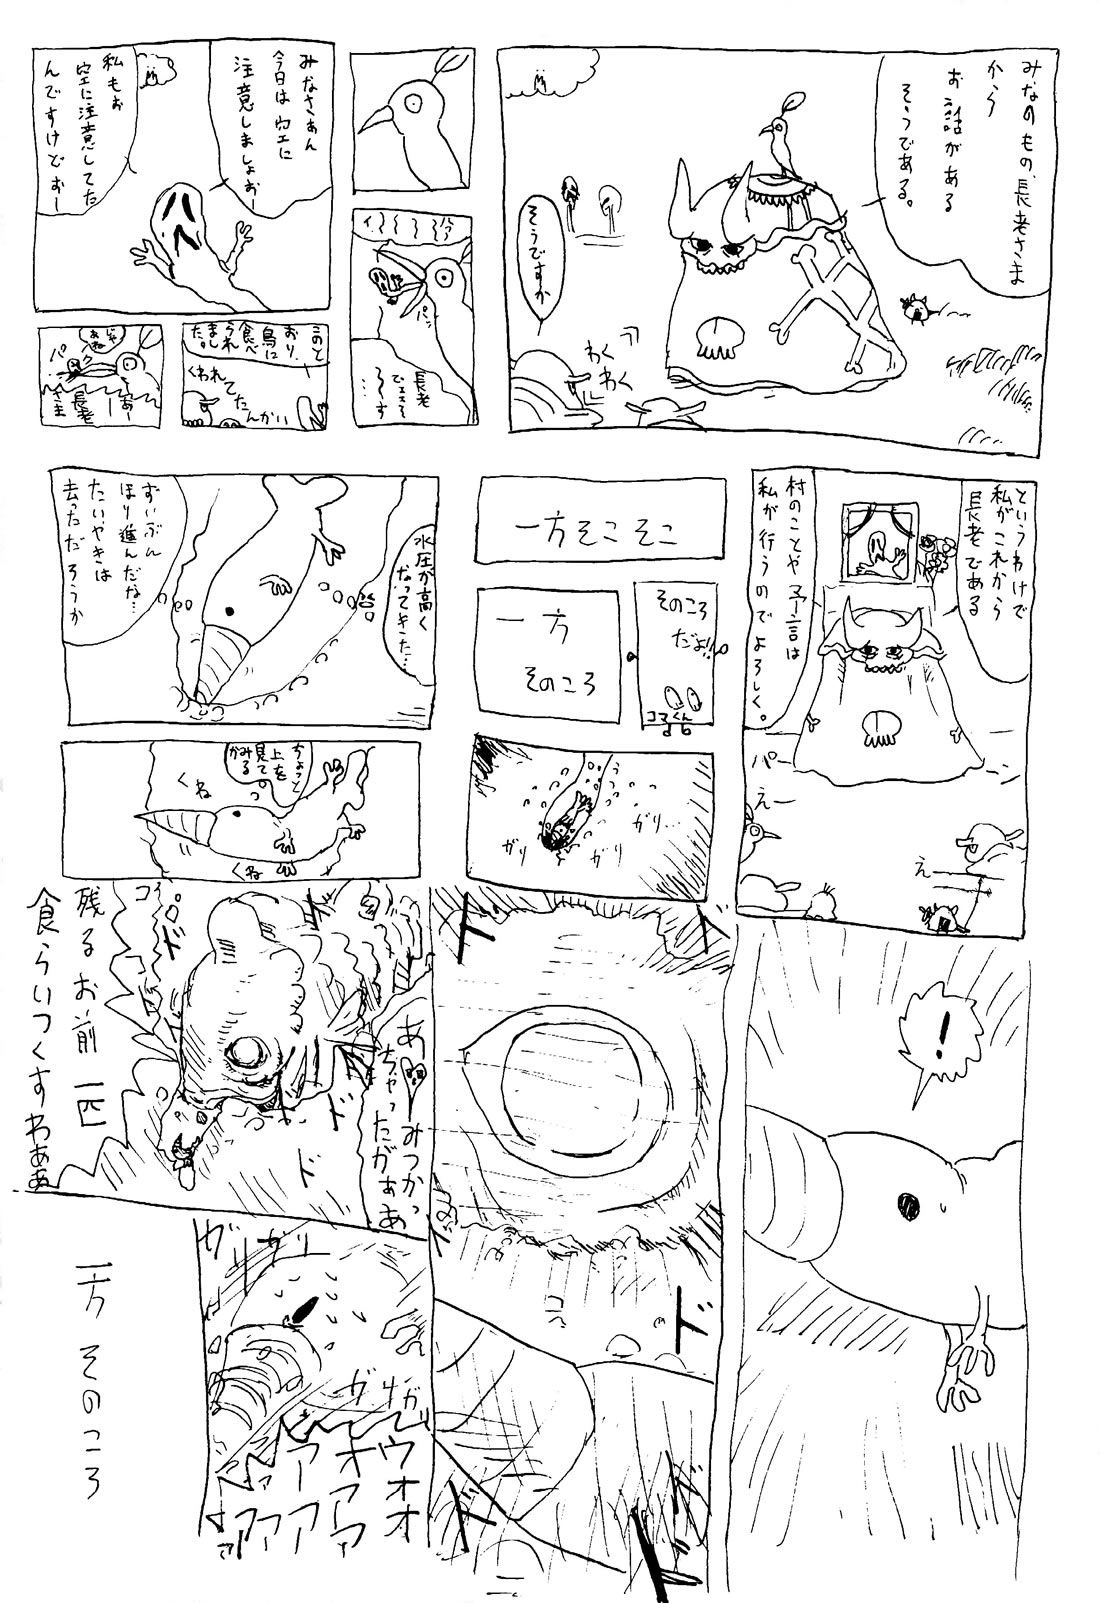 みなのもの、長老さま
から
お話がある
そうである。
そうですか
わく
わく
みなさぁん
今日は空に
注意しましょおー
私もぉ
空に注意してた
んですけどぉー
パッ
長老
このとおり、
鳥に
食べ
られ
ました。
くわれ
てた
んかい
じゃ
あね
パク
あー
長老
さま
というわけで
私がこれから
長老である
村のことや予言は
私が行うのでよろしく。
パー
えー
えー
一方そこそこ
そのころ
だよ!!
コマくん
一方
そのころ
ガリ…
ガリ
ガリ
水圧が高く
なってきた…
ずいぶん
ほり進んだな…
たいやきは
去っただろうか
ちょっと
上を
見て
みる
か
くね
くね
!
ド
ド
ド
ド
ド
ド
あ
みつかっ
ちゃったがぁあ
ド
ド
ド
残るお前一匹
食らいつくすわああ
ガリガリ
ガリガリ
ウオオ
オアア
アーア
アア
一方そのころ